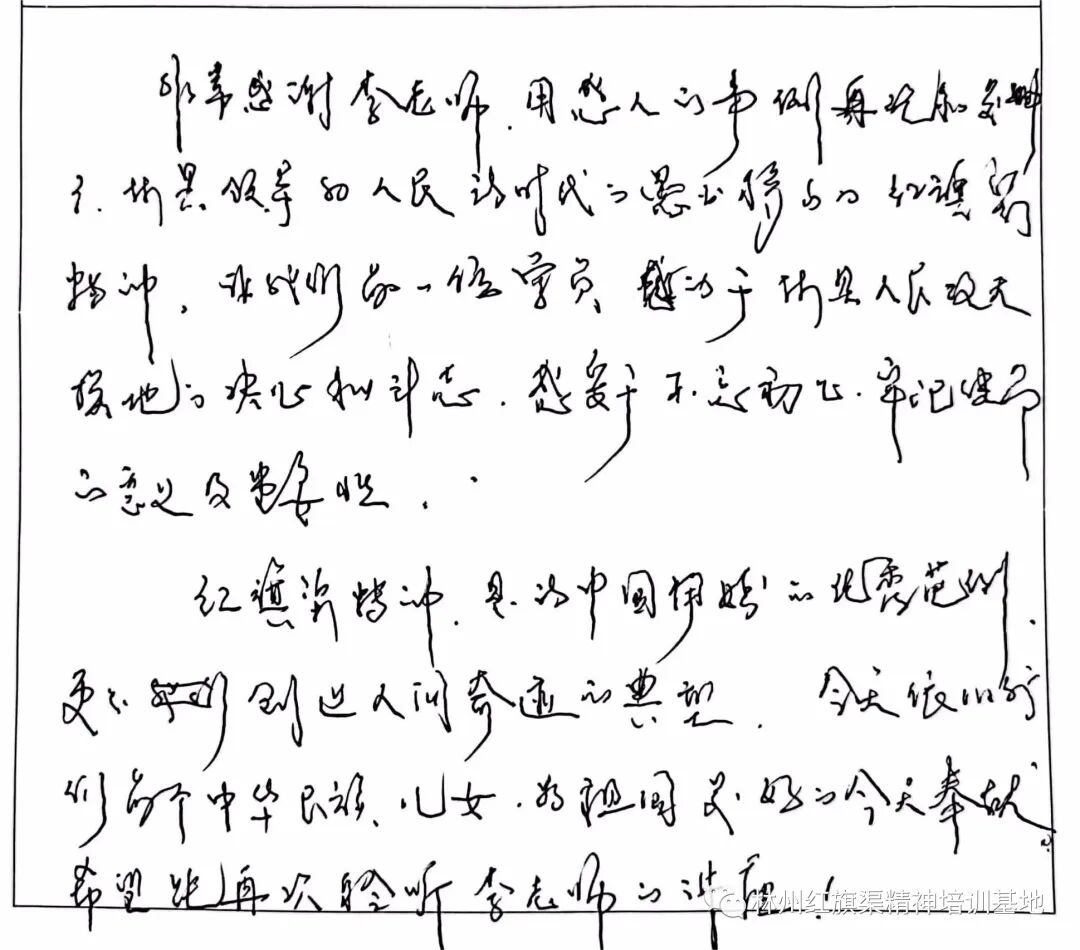 非常感谢李老师,用感人的事例再现和诠
了林县领导和人民诗时代的愚公移山的红旗渠
精神,让我们每一位学员感动于林县人民改天
换地的决心和斗志,感受于不忘初心,牢记使命
的意义及重要性.
红旗渠精神,是的中国的优秀范例,
更是创造人间奇迹的典型. 今天依旧
们每个中华民族儿女,为祖国美好的今天奉献
希望能再次聆听李老师的讲座!
林州红旗渠精神培训基地